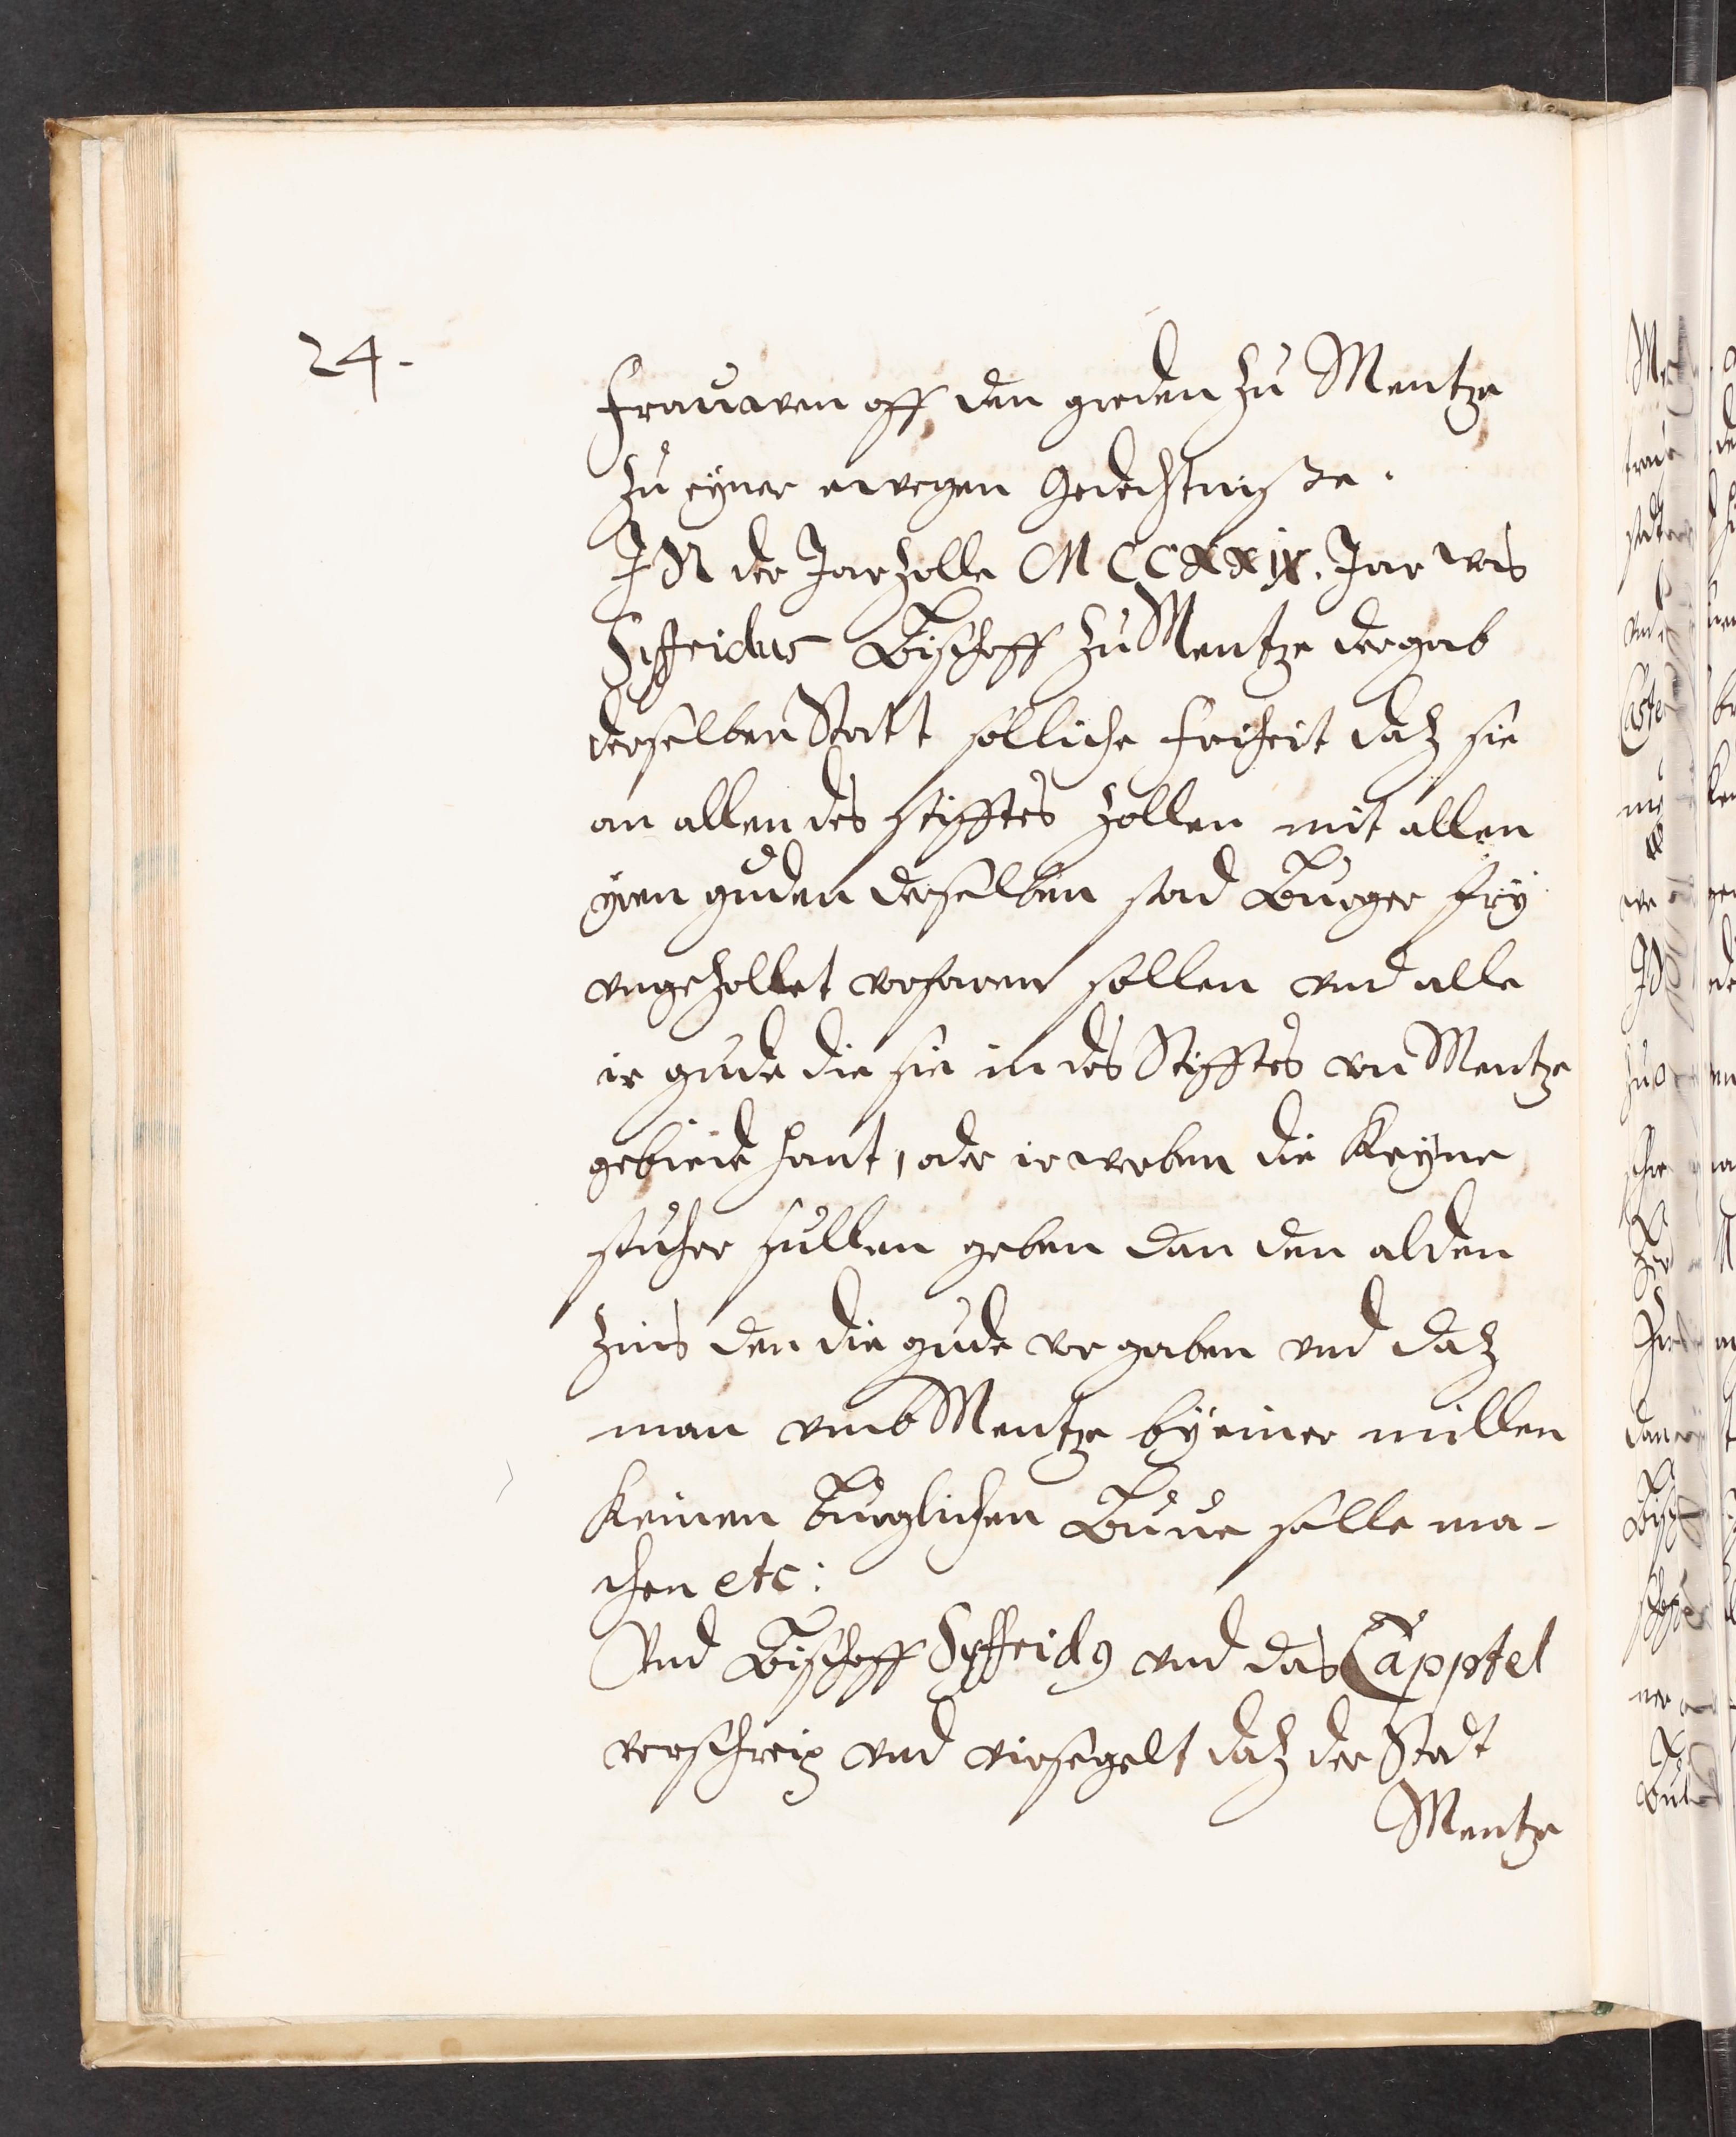 24.
Frauwen off den greden zu Mentze
zu eyner ewegen Gedechtniß3e.
IN der Jarzolle MCCXXIX. Jar was
Syffridus Bischoff zu Mentze der gab
derselben Statt solliche friheit daz sie
an allen des stifftes zollen mit allen
yren guden derselben stad Burger fry
ungezollet verfaren sollen vnd alle
ir gude die sie in des Stifftes von Mentze
gebiede hant, oder irwerben die keyne
stuher sullen geben dan den alden
zins den die gude vor gaben vnd daz
man vmb Mentze by einer millen
keinen burglichen Buwe solle ma-
chen etc:
Vnd Bischoff Syffrid9 vnd das Cappetel
verschreip vnd virsegelt daz der Stadt
Mentze